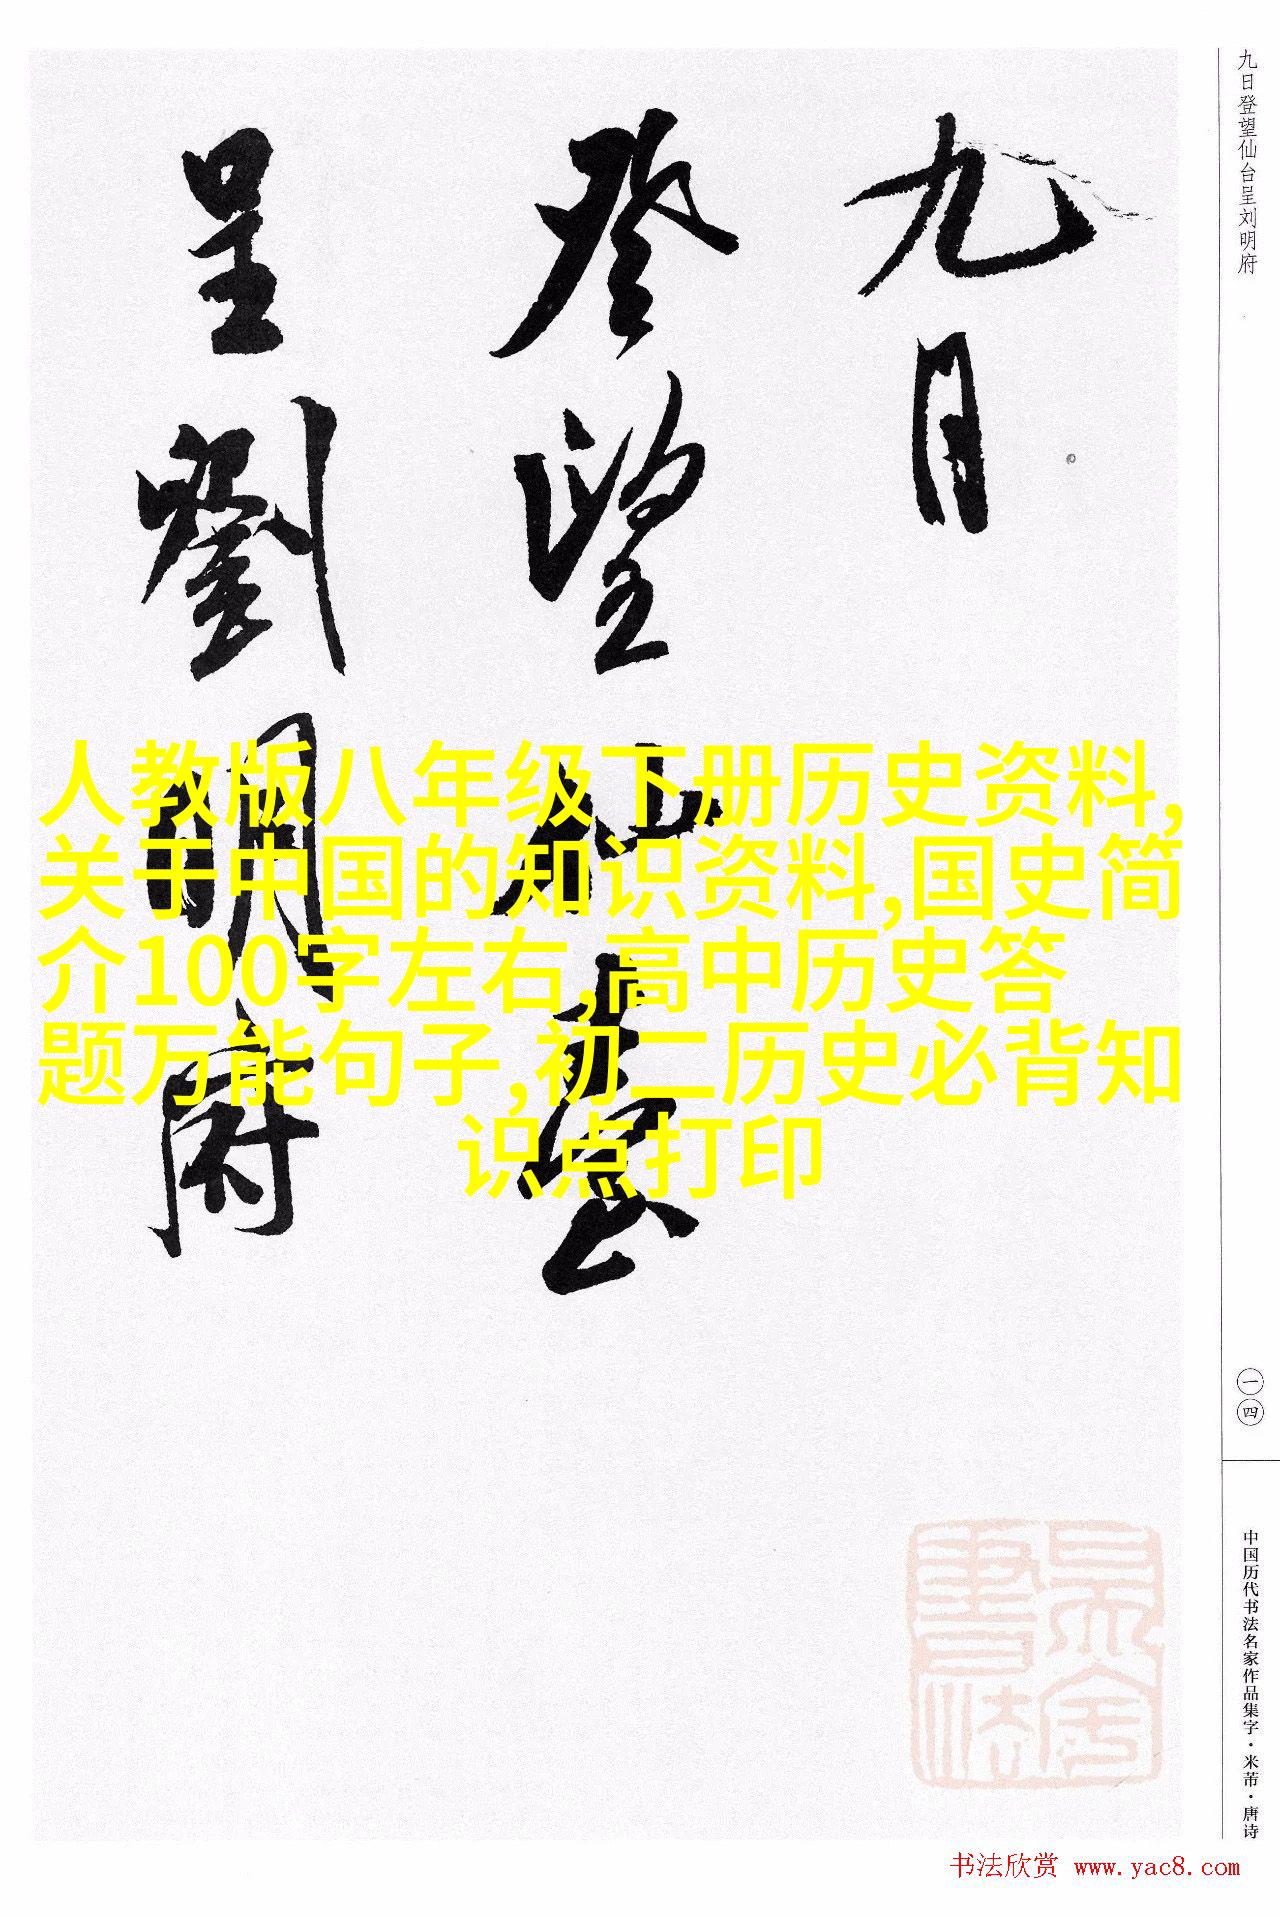 九日
登望仙臺
呈劉明府
九日登望仙台呈刘明府
人教版八年级下册历史资料,
关于中国的知识资料,国史简
介100字左右,高中历史答
题万能句子,初二历史必背知
识点打印
一四
中国历代书法名家作品集字·米芾·唐诗
书法欣赏 www.yac8.com